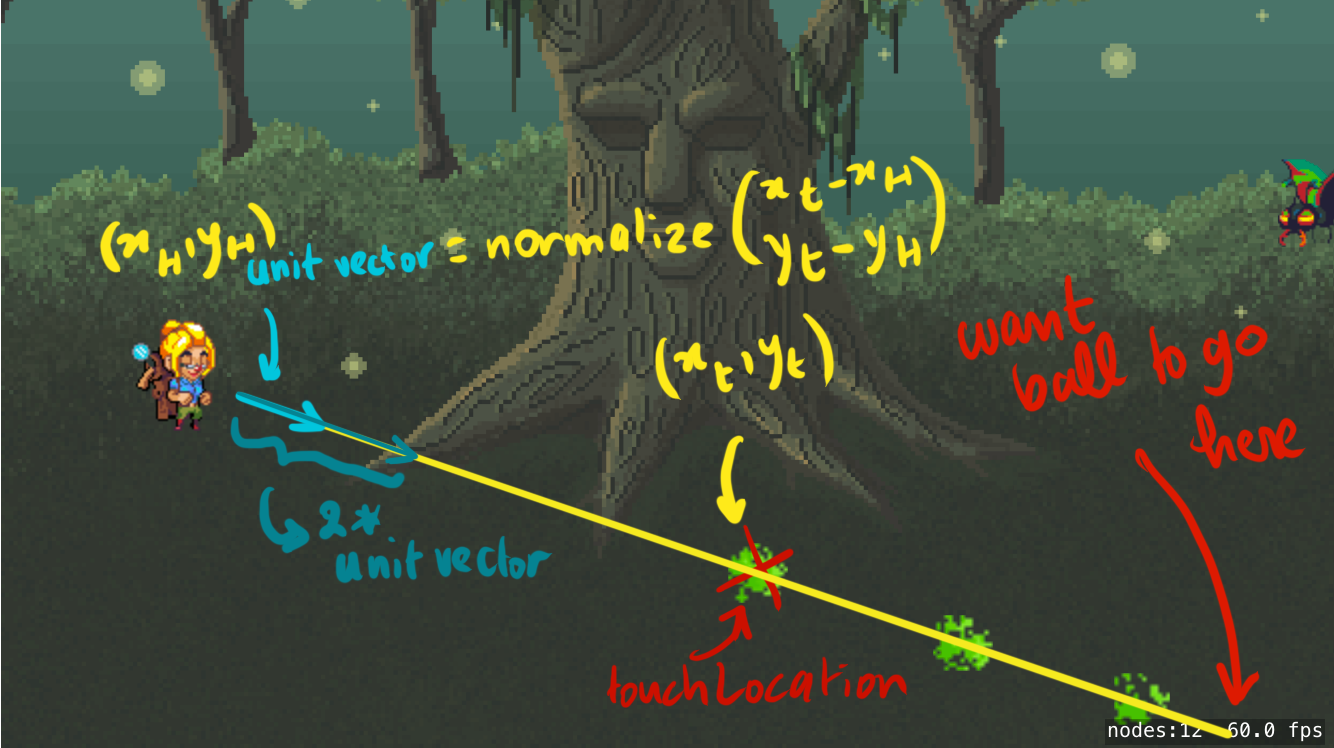 (x_H, y_H)
unit vector = normalize (x_t - x_H
y_t - y_H)
(x_t, y_t)
want
ball to go
here
2*
unit vector
touchLocation
nodes:12 60.0 fps